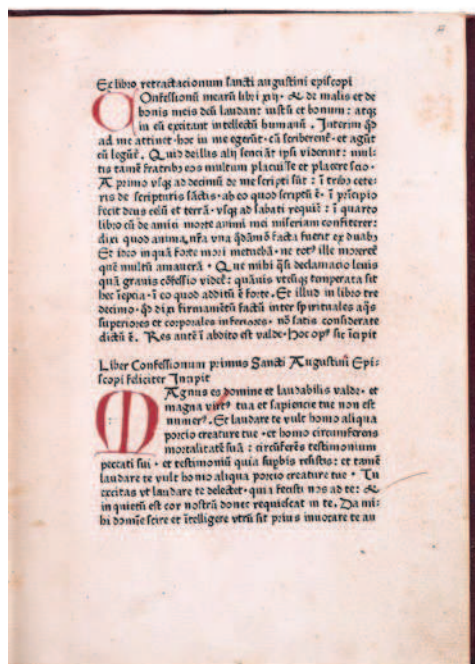 Ex libro retractacionum sancti augustini episcopi
COnfessionũ mearũ libri xiij · & de malis et de
bonis meis deũ laudant iustũ et bonum : atq;
in eũ excitant intellectũ humanũ . Interim qđ
ad me attinet · hoc in me egerũt · cũ scriberent̃ · et agũt
cũ legũt̃ . Quid de illis alij senciãt ipsi viderint : mul⸗
tis tamẽ fratribȝ eos multum placuisse et placere scio .
A primo vsq; ad decimũ de me scripti sũt : ĩ tribȝ cete⸗
ris de scripturis sãctis · ab eo quod scriptũ ẽ · ĩ p̃ncipio
fecit deus celũ et terrã · vsq; ad sabati requiẽ : ĩ quarto
libro cũ de amici morte animi mei miseriam confiterer :
dixi quod anima nr̃a vna qdãmõ facta fuerit ex duabȝ
Et ideo inquã forte mori metuebã · ne totꝰ ille moreret̃
quẽ multũ amauerã · Que mihi q̃si declamacio leuis
quã grauis cõfessio videt̃ : quãuis vtcũq; temperata sit
hec ĩepcia · ĩ eo quod additũ ẽ forte . Et illud in libro tre
decimo · qđ dixi firmamẽtũ factũ inter spirituales aq̃s
superiores et corporales inferiores · nõ satis considerate
dictũ ẽ . Res autẽ ĩ abdito est valde · Hoc opꝰ sic ĩcipit
Liber Confessionum primus Sancti Augustini Epi⸗
scopi feliciter Incipit
MAgnus es domine et laudabilis valde · et
magna virtꝰ tua et sapiencie tue non est
numerꝰ . Et laudare te vult homo aliqua
porcio creature tue · et homo circumferens
mortalitatẽ suã : circũferẽs testimonium
peccati sui · et testimoniũ quia supbis resistis : et tamẽ
laudare te vult homo aliqua porcio creature tue · Tu
excitas vt laudare te delectet · quia fecisti nos ad te : &
inquietũ est cor nostrũ donec requiescat in te . Da mi⸗
hi domĩe scire et ĩtelligere vtrũ sit prius inuocare te an